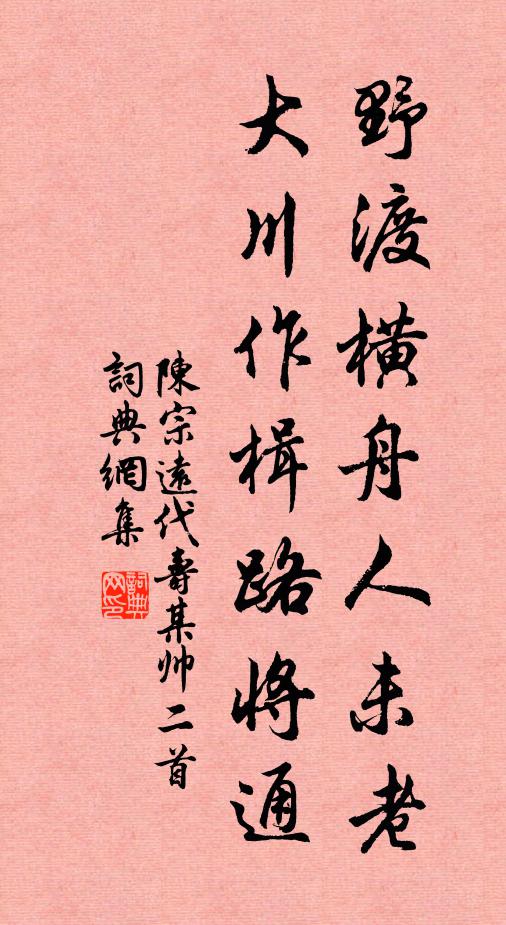 野渡橫舟人未老
大川作楫路將通
陳宗遠代壽某帅二首
詞典網集
詞典网印